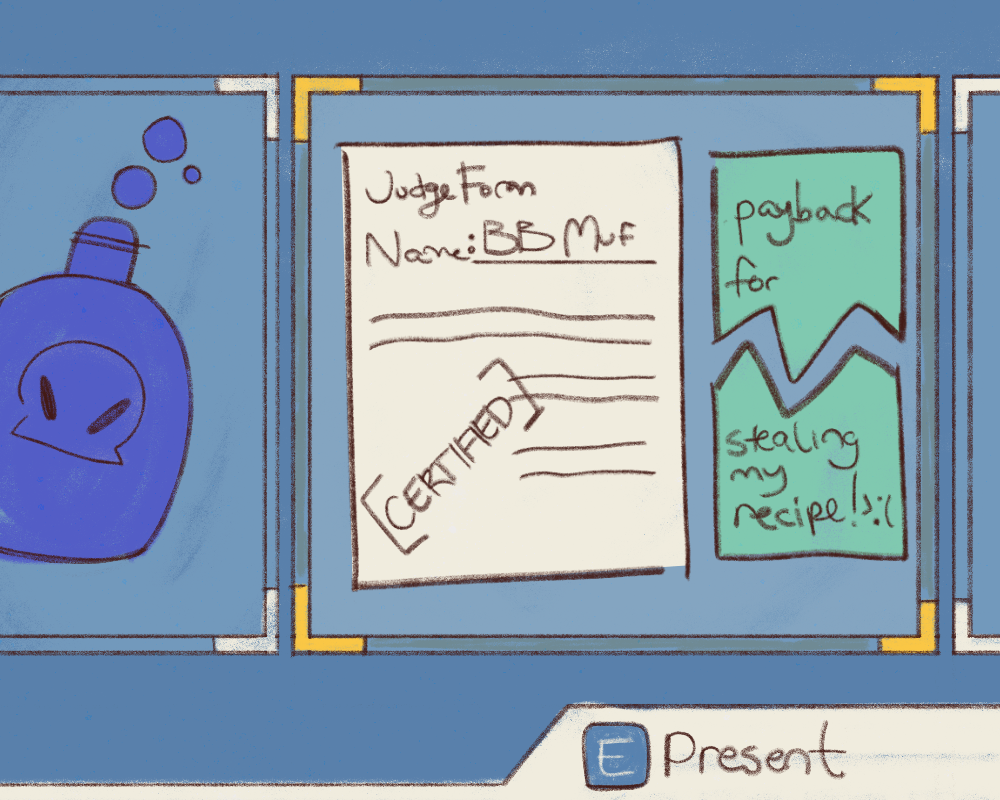 Judge Form
Name: BB Muf
[CERTIFIED]
payback
for
stealing
my
recipe! >:(
E Present